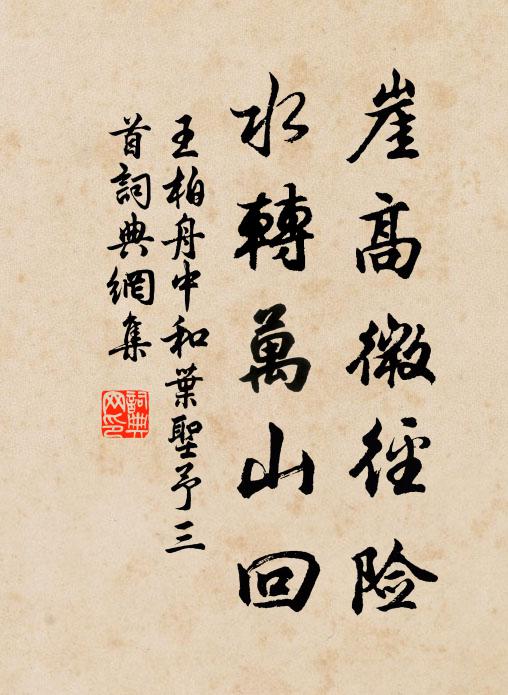 崖高微徑险
水轉萬山回
王柏舟中和葉聖予三
首詞典網集
詞典網印